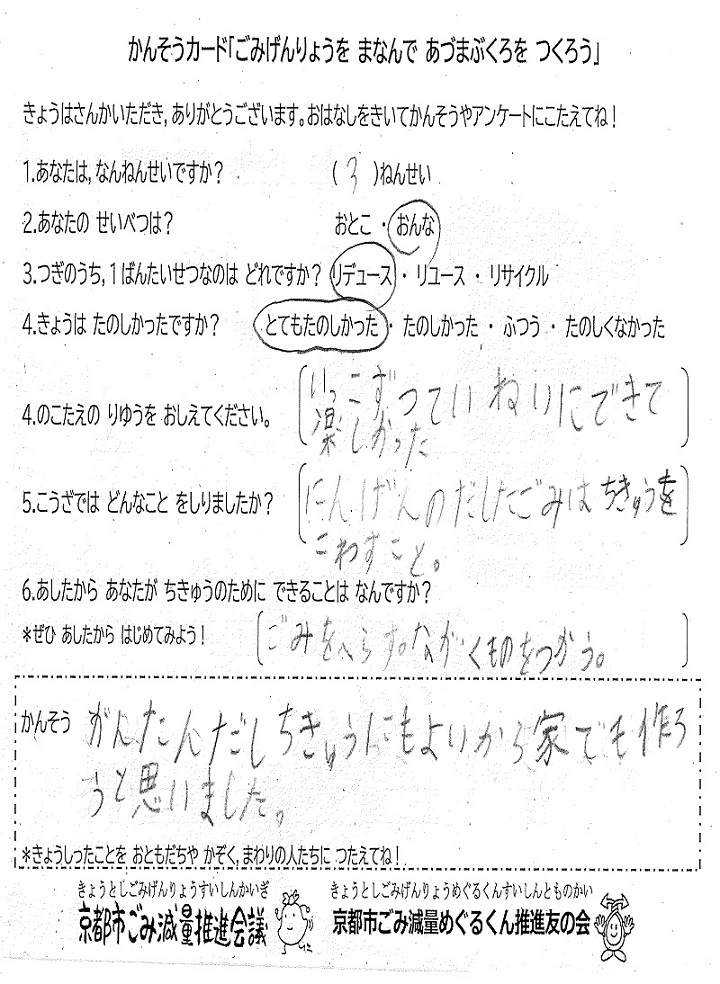 かんそうカード「ごみげんりょうを まなんで あづまぶくろを つくろう」
きょうはさんかいただき,ありがとうございます。おはなしをきいてかんそうやアンケートにこたえてね!
1.あなたは,なんねんせいですか? (3)ねんせい
2.あなたの せいべつは? おとこ ・ おんな
3.つぎのうち,1ばんたいせつなのは どれですか? リデュース ・ リユース ・ リサイクル
4.きょうは たのしかったですか? とてもたのしかった ・ たのしかった ・ ふつう ・ たのしくなかった
いっこずつていねりにできて
4.のこたえの りゆうを おしえてください。
楽しかった
5.こうざでは どんなこと をしりましたか? にんげんのだしたごみはちきゅうを
こわすこと。
6.あしたから あなたが ちきゅうのために できることは なんですか?
*ぜひ あしたから はじめてみよう! ごみをへらす。ながくものをつかう。
かんそう がんたんだしちきゅうにもよいから家でも作ろ
うと思いました。
*きょうしったことを おともだちや かぞく,まわりの人たちに つたえてね!
きょうとしごみげんりょうすいしんかいぎ きょうとしごみげんりょうめぐるくんすいしんとものかい
京都市ごみ減量推進会議 京都市ごみ減量めぐるくん推進友の会